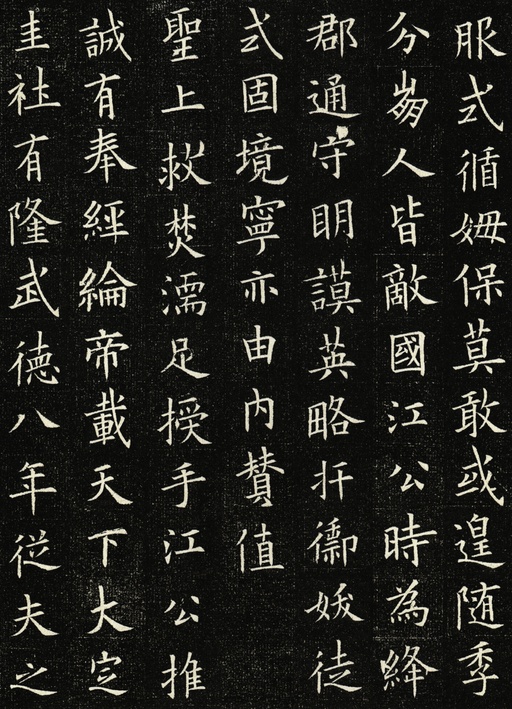 服式循姆保莫敢或遑随季
分崩人皆敵國江公時為絳
郡通守明謨英略扞御妖徒
式固境寧亦由内賛值
聖上救焚濡足授手江公推
誠有奉經綸帝載天下大定
圭社有隆武徳八年従夫之